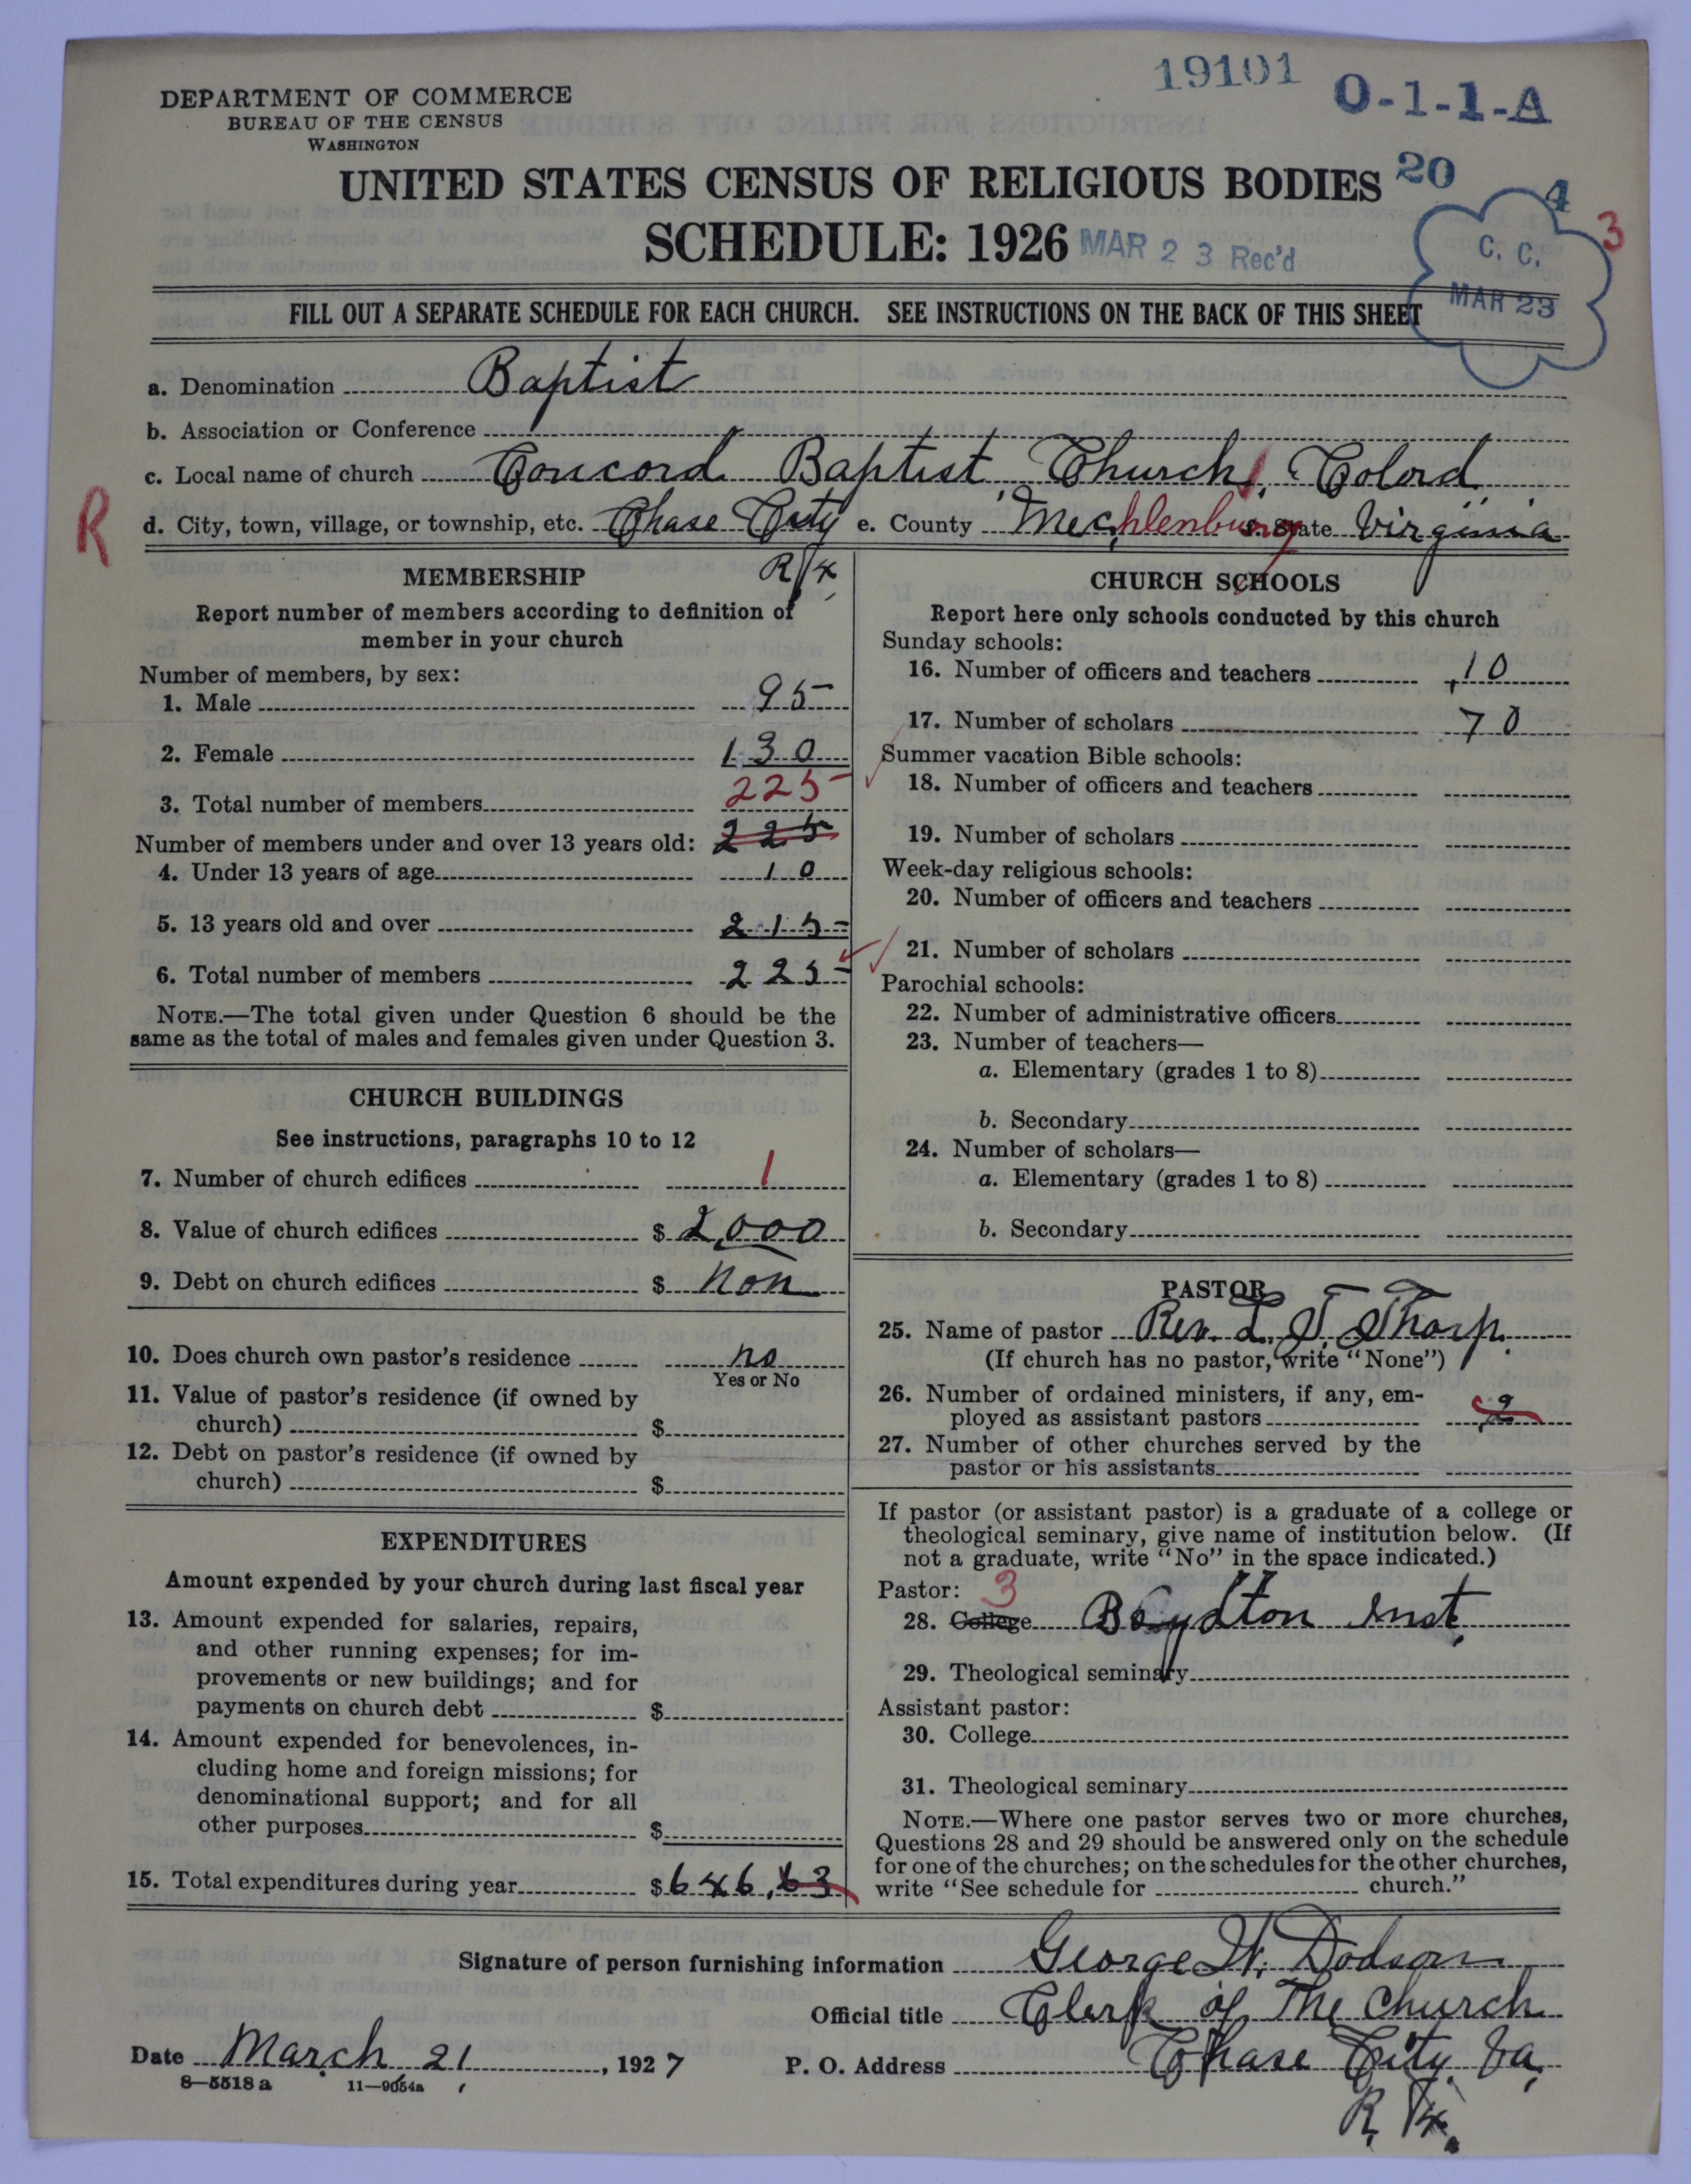 19101
O-1-1-A
DEPARTMENT OF COMMERCE
BUREAU OF THE CENSUS
WASHINGTON
UNITED STATES CENSUS OF RELIGIOUS BODIES 20
4
3
SCHEDULE: 1926 MAR 23 Rec'd
C. C.
MAR 23
FILL OUT A SEPARATE SCHEDULE FOR EACH CHURCH. SEE INSTRUCTIONS ON THE BACK OF THIS SHEET
a. Denomination Baptist
b. Association or Conference
c. Local name of church Concord Baptist Church, Colord
R
d. City, town, village, or township, etc. Chase City e. County Mechlenburg State Virginia
R/4
MEMBERSHIP
Report number of members according to definition of
member in your church
Number of members, by sex:
1. Male 95
2. Female 130
225
3. Total number of members
Number of members under and over 13 years old: 225
4. Under 13 years of age 10
5. 13 years old and over 215
6. Total number of members 225
NOTE.—The total given under Question 6 should be the
same as the total of males and females given under Question 3.
CHURCH BUILDINGS
See instructions, paragraphs 10 to 12
7. Number of church edifices 1
8. Value of church edifices $ 2,000
9. Debt on church edifices $ Non
10. Does church own pastor's residence no
Yes or No
11. Value of pastor's residence (if owned by
church) $
12. Debt on pastor's residence (if owned by
church) $
EXPENDITURES
Amount expended by your church during last fiscal year
13. Amount expended for salaries, repairs,
and other running expenses; for im-
provements or new buildings; and for
payments on church debt $
14. Amount expended for benevolences, in-
cluding home and foreign missions; for
denominational support; and for all
other purposes $
15. Total expenditures during year $ 646.63
CHURCH SCHOOLS
Report here only schools conducted by this church
Sunday schools:
16. Number of officers and teachers 10
17. Number of scholars 70
Summer vacation Bible schools:
18. Number of officers and teachers
19. Number of scholars
Week-day religious schools:
20. Number of officers and teachers
21. Number of scholars
Parochial schools:
22. Number of administrative officers
23. Number of teachers—
a. Elementary (grades 1 to 8)
b. Secondary
24. Number of scholars—
a. Elementary (grades 1 to 8)
b. Secondary
PASTOR
25. Name of pastor Rev. L. J. Tharp.
(If church has no pastor, write "None")
26. Number of ordained ministers, if any, em-
ployed as assistant pastors 2
27. Number of other churches served by the
pastor or his assistants
If pastor (or assistant pastor) is a graduate of a college or
theological seminary, give name of institution below. (If
not a graduate, write "No" in the space indicated.)
Pastor: 3
28. College Boydton Inst.
29. Theological seminary
Assistant pastor:
30. College
31. Theological seminary
NOTE.—Where one pastor serves two or more churches,
Questions 28 and 29 should be answered only on the schedule
for one of the churches; on the schedules for the other churches,
write "See schedule for church."
Signature of person furnishing information George W. Dodson
Official title Clerk of The Church
Date March 21, 1927 P. O. Address Chase City Va,
8—5518a 11—9054a
R. 4.